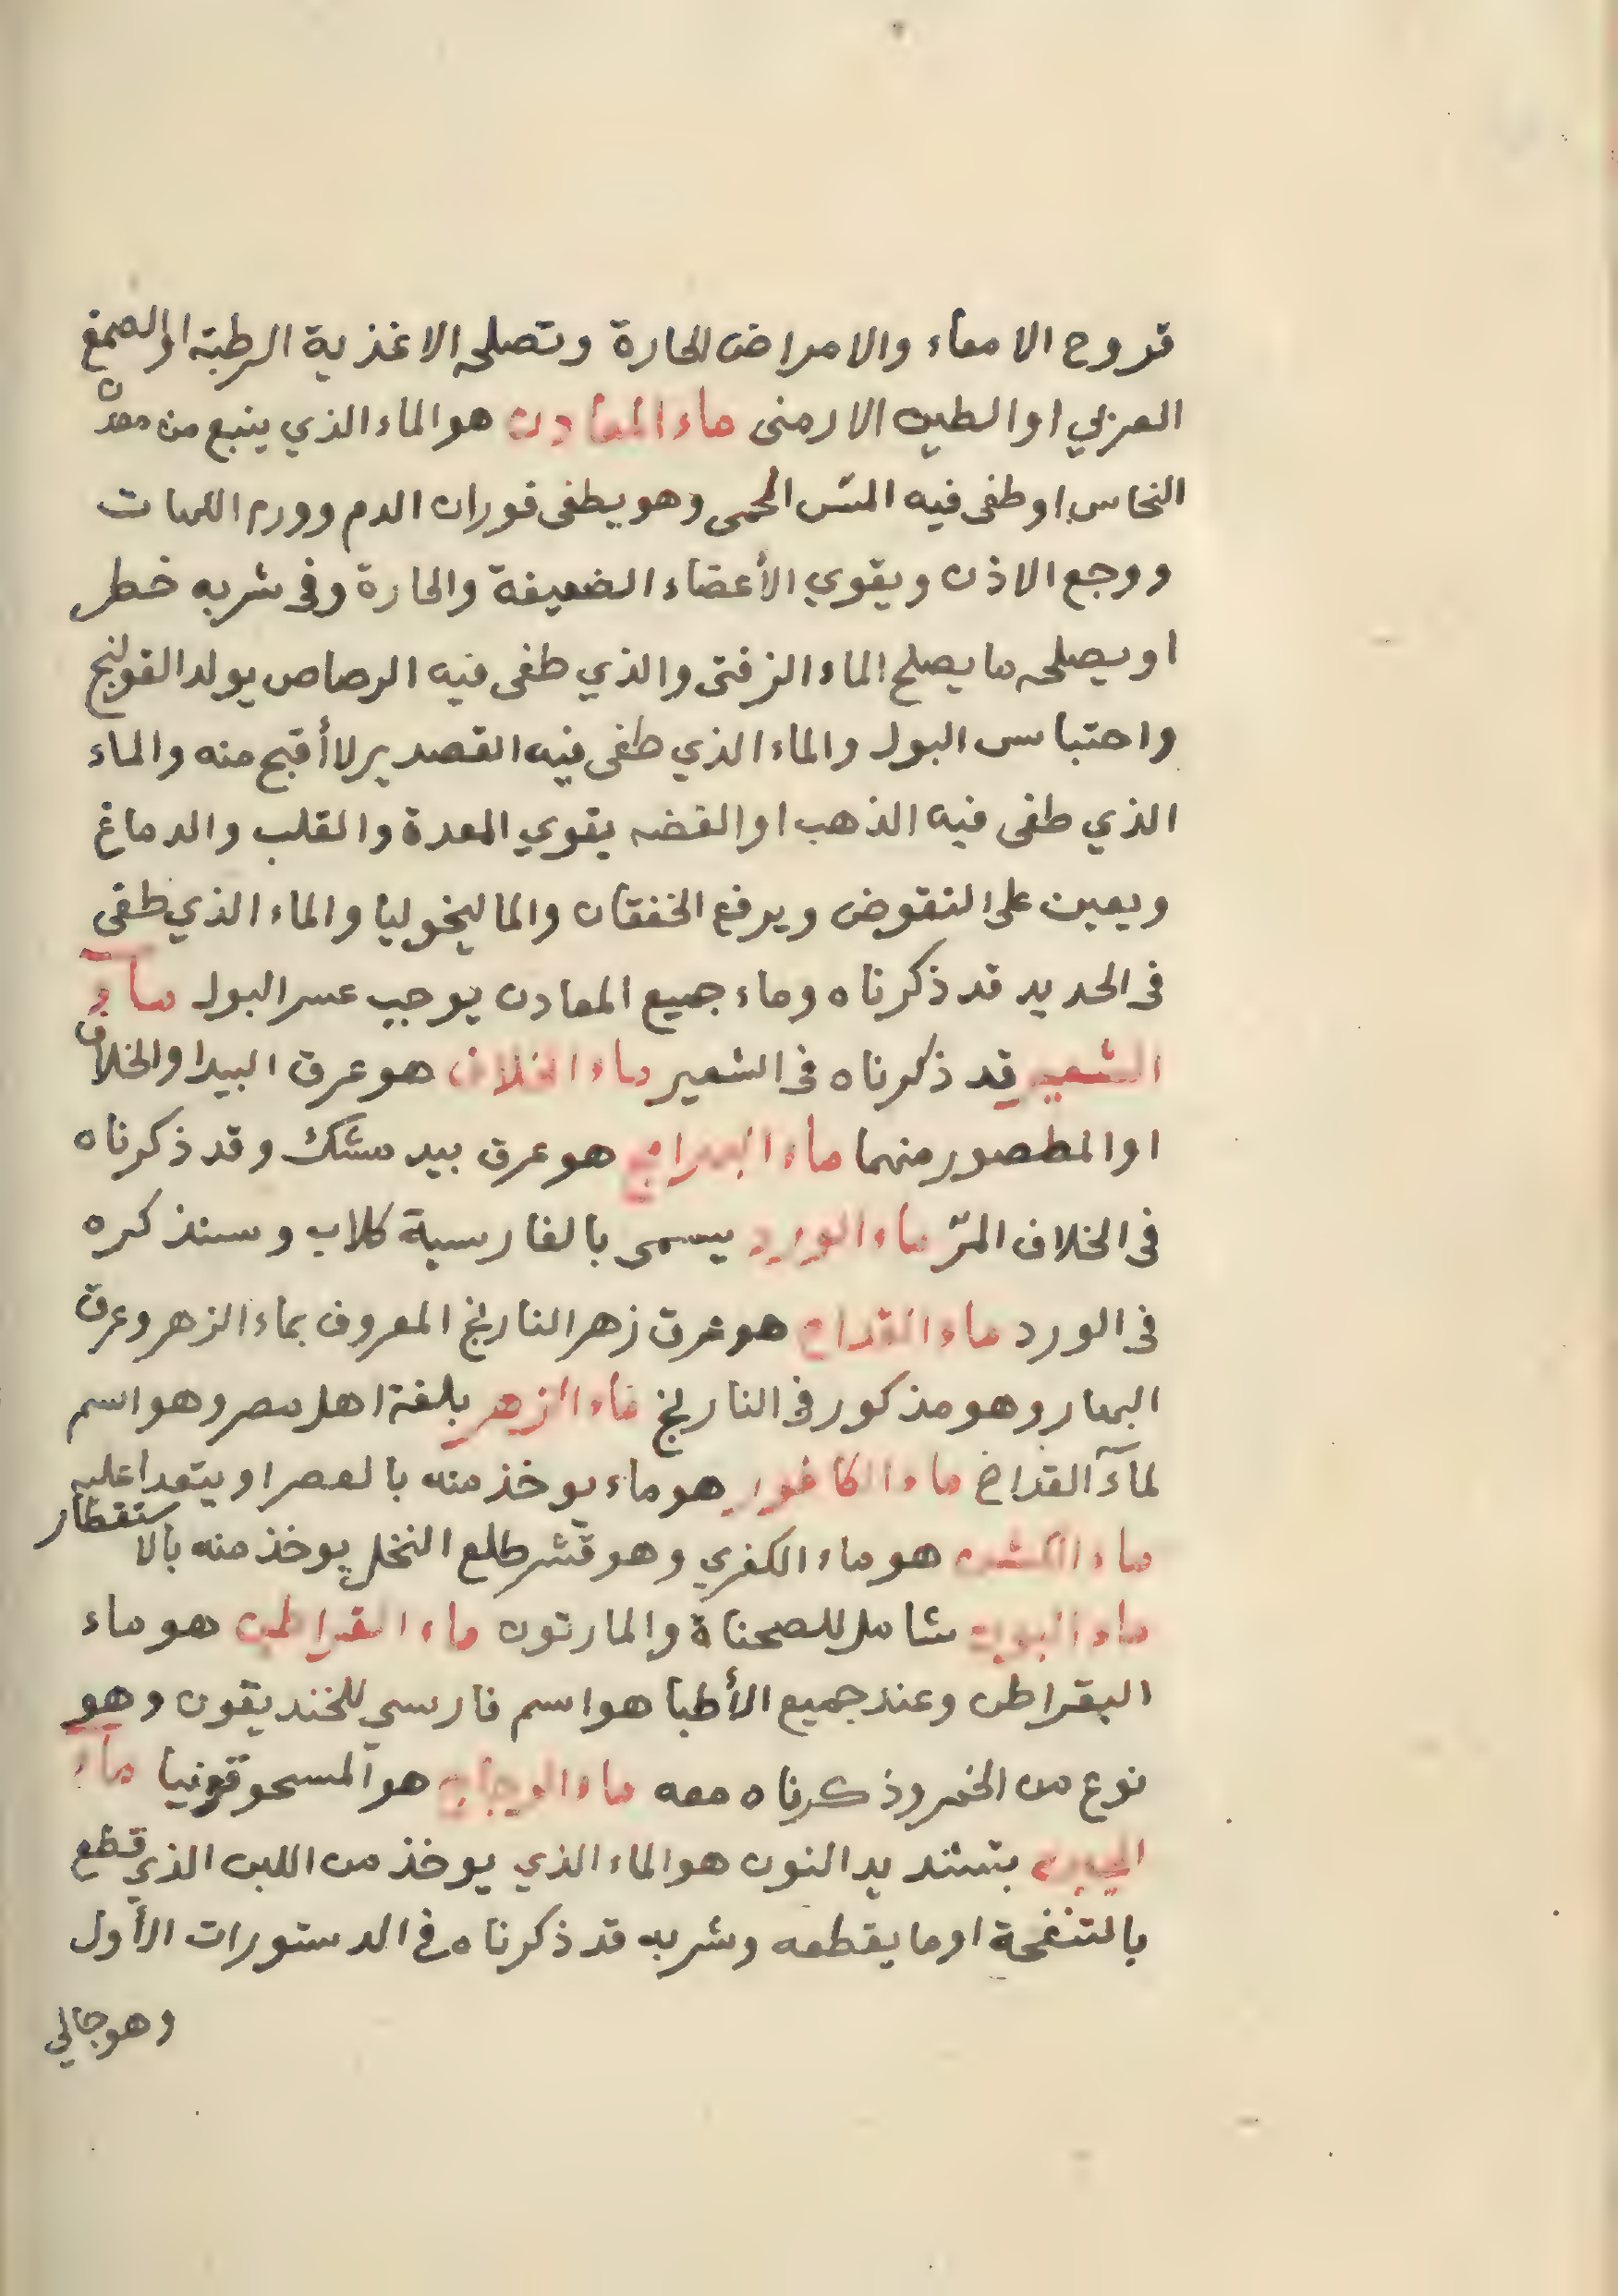 قروح الامعاء والامراض الحارة وتصلحه الاغذية الرطبة او الصمغ
العربي او الطين الارمنى ماء المعادن هو الماء الذي ينبع من معدن
النحاس او طفى فيه المس المحمى وهو يطفى فوران الدم وورم اللهات
ووجع الاذن ويقوي الأعضاء الضعيفة والحارة وفى شربه خطر
او يصلحه ما يصلح الماء الزفتى والذي طفى فيه الرصاص يولد القولنج
واحتباس البول والماء الذي طفى فيه القصدير لا أقبح منه والماء
الذي طفى فيه الذهب او الفضه يقوي المعدة والقلب والدماغ
ويعين على النقوض ويرفع الخفقان والماليخوليا والماء الذي طفى
فى الحديد قد ذكرناه وماء جميع المعادن يوجب عسر البول مآء
الشعير قد ذكرناه فى الشعير ماء الخلاف هو عرق البيد او الخلاف
او المطصور منهما ماء البهرامج هو عرق بيد مشك وقد ذكرناه
فى الخلاف المرّ ماء الورد يسمى بالفارسية كلاب وسنذكره
فى الورد ماء القداح هو عرق زهر النارنج المعروف بماء الزهر وعرق
البهار وهو مذكور فى النارنج ماء الزهر بلغة اهل مصر وهو اسم
لمآء القداح ماء الكافور هو ماء يوخذ منه بالعصر او
ماء الكشن هو ماء الكفري وهو قشر طلع النخل يوخذ منه بالاستقطار
ماء النون شامل للصحناة والمارتون ماء القراطن هو ماء
البقراطن وعند جميع الأطبا هو اسم فارسي للخنديقون وهو
نوع من الخمر وذكرناه معه ماء الزجاج هو المسحوقونيا مآء
الجبن بتشديد النون هو الماء الذي يوخذ من اللبن الذي قطع
بالتنفحة او ما يقطعه وشربه قد ذكرناه فى الدستورات الأول
وهو جالي